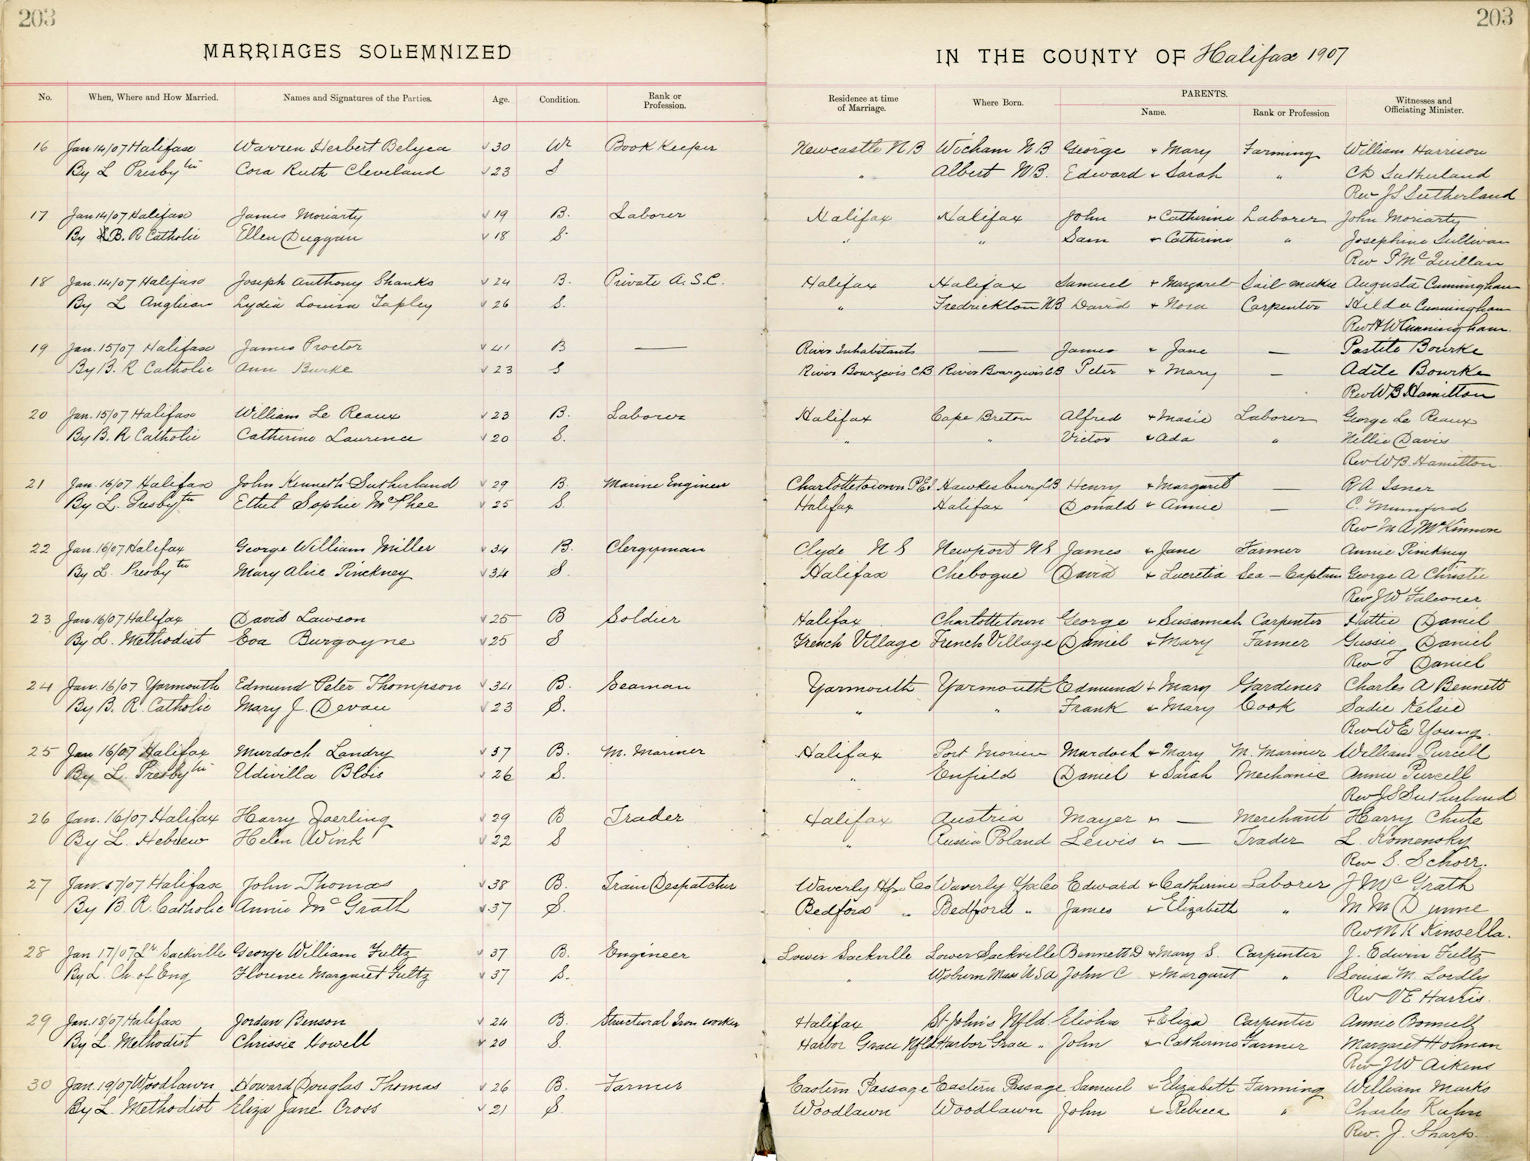 203
203
MARRIAGES SOLEMNIZED
IN THE COUNTY OF Halifax 1907
No. When, Where and How Married. Names and Signatures of the Parties. Age. Condition. Rank or Profession. Residence at time of Marriage. Where Born. PARENTS. Name. Rank or Profession Witnesses and Officiating Minister.
16 Jan 14/07 Halifax Warren Herbert Belyea 30 Wr Book Keeper Newcastle N B Wicham N B George & Mary Farming William Harrison
By L Presbytn Cora Ruth Cleveland 23 S " Albert N B. Edward & Sarah " Ch Sutherland
Rev J S Sutherland
17 Jan 14/07 Halifax James Moriarty 19 B. Laborer Halifax Halifax John & Catherine Laborer John Moriarty
By B. R Catholic Ellen Duggan 18 S " " Sam & Catherine " Josephine Sullivan
Rev P McQuillan
18 Jan. 14/07 Halifax Joseph Anthony Shanks 24 B. Private A. S. C. Halifax Halifax Samuel & Margaret Sail maker Augusta Cunningham
By L Anglican Lydia Louisa Tapley 26 S. " Fredrickton N B David & Nora Carpenter Hilda Cunningham
Rev H W Cunningham
19 Jan. 15/07 Halifax James Proctor 41 B — River Inhabitants — James & Jane — Bourke
By B. R Catholic Ann Burke 23 S River Bourgeois C B River Bourgeois C B Peter & Mary — Adele Bourke
Rev W B Hamilton
20 Jan. 15/07 Halifax William Le Reaux 23 B. Laborer Halifax Cape Breton Alfred & Masie Laborer George Le Reaux
By B. R Catholic Catherine Laurence 20 S. " " Victor & Ada " Nellie Davis
Rev W B. Hamilton
21 Jan. 16/07 Halifax John Kenneth Sutherland 29 B. Marine Engineer Charlottetown P E I Hawkesbury C B Henry & Margaret — R A Isner
By L. Presbytn Ethel Sophie McPhee 25 S. Halifax Halifax Donald & Annie — C. Mumford
Rev M A McKinnon
22 Jan. 16/07 Halifax George William Miller 34 B. Clergyman Clyde N S Newport N S James & Jane Farmer Annie Pinckney
By L. Presbytn Mary Alice Pinckney 34 S. Halifax Chebogue David & Lucretia Sea - Captain George A Christie
Rev J W Falconer
23 Jan 16/07 Halifax David Lawson 25 B Soldier Halifax Charlottetown George & Susannah Carpenter Hattie Daniel
By L. Methodist Eva Burgoyne 25 S French Village French Village Daniel & Mary Farmer Gussie Daniel
Rev F Daniel
24 Jan. 16/07 Yarmouth Edmund Peter Thompson 34 B. Seaman Yarmouth Yarmouth Edmund & Mary Gardener Charles A Bennett
By B. R Catholic Mary J. Devau 23 S. " " Frank & Mary Cook Sadie Kelsie
Rev W E Young.
25 Jan 16/07 Halifax Murdoch Landry 37 B. M. Mariner Halifax Port Morien Murdoch & Mary M. Mariner William Purcell
By L. Presbytn Udivilla Blois 26 S. " Enfield Daniel & Sarah Mechanic Annie Purcell
Rev J S Sutherland
26 Jan. 16/07 Halifax Harry Zoerling 29 B Trader Halifax Austria Mayer " — Merchant Harry Chute
By L. Hebrew Helen Wink 22 S " Russia Poland Lewis " — Trader L. Komensky
Rev S. Schorr.
27 Jan. 17/07 Halifax John Thomas 38 B. Train Despatcher Waverly Hfx Co Waverly Hfx Co Edward & Catherine Laborer J McGrath
By B R. Catholic Annie McGrath 37 S. Bedford " Bedford " James & Elizabeth " M M Dunne
Rev M K Kinsella.
28 Jan 17/07 Lr Sackville George William Fultz 37 B. Engineer Lower Sackville Lower Sackville Bennett D & Mary S. Carpenter J. Edwin Fultz
By L. Ch of Eng Florence Margaret Fultz 37 S. " Woburn Mass U S A John C & Margaret " Louisa M. Lordly
Rev V E Harris.
29 Jan. 18/07 Halifax Jordan Benson 24 B. Structural Iron worker Halifax St John's Nfld Elisha & Eliza Carpenter Annie Bonnell
By L. Methodist Chrissie Howell 20 S. Harbor Grace Nfld Harbor Grace " John & Catherine Farmer Margaret Holman
Rev J W Aikens
30 Jan. 19/07 Woodlawn Howard Douglas Thomas 26 B. Farmer Eastern Passage Eastern Passage Samuel & Elizabeth Farming William Marks
By L. Methodist Eliza Jane Cross 21 S. Woodlawn Woodlawn John & Rebecca " Charles Kuhn
Rev. J. Sharp.